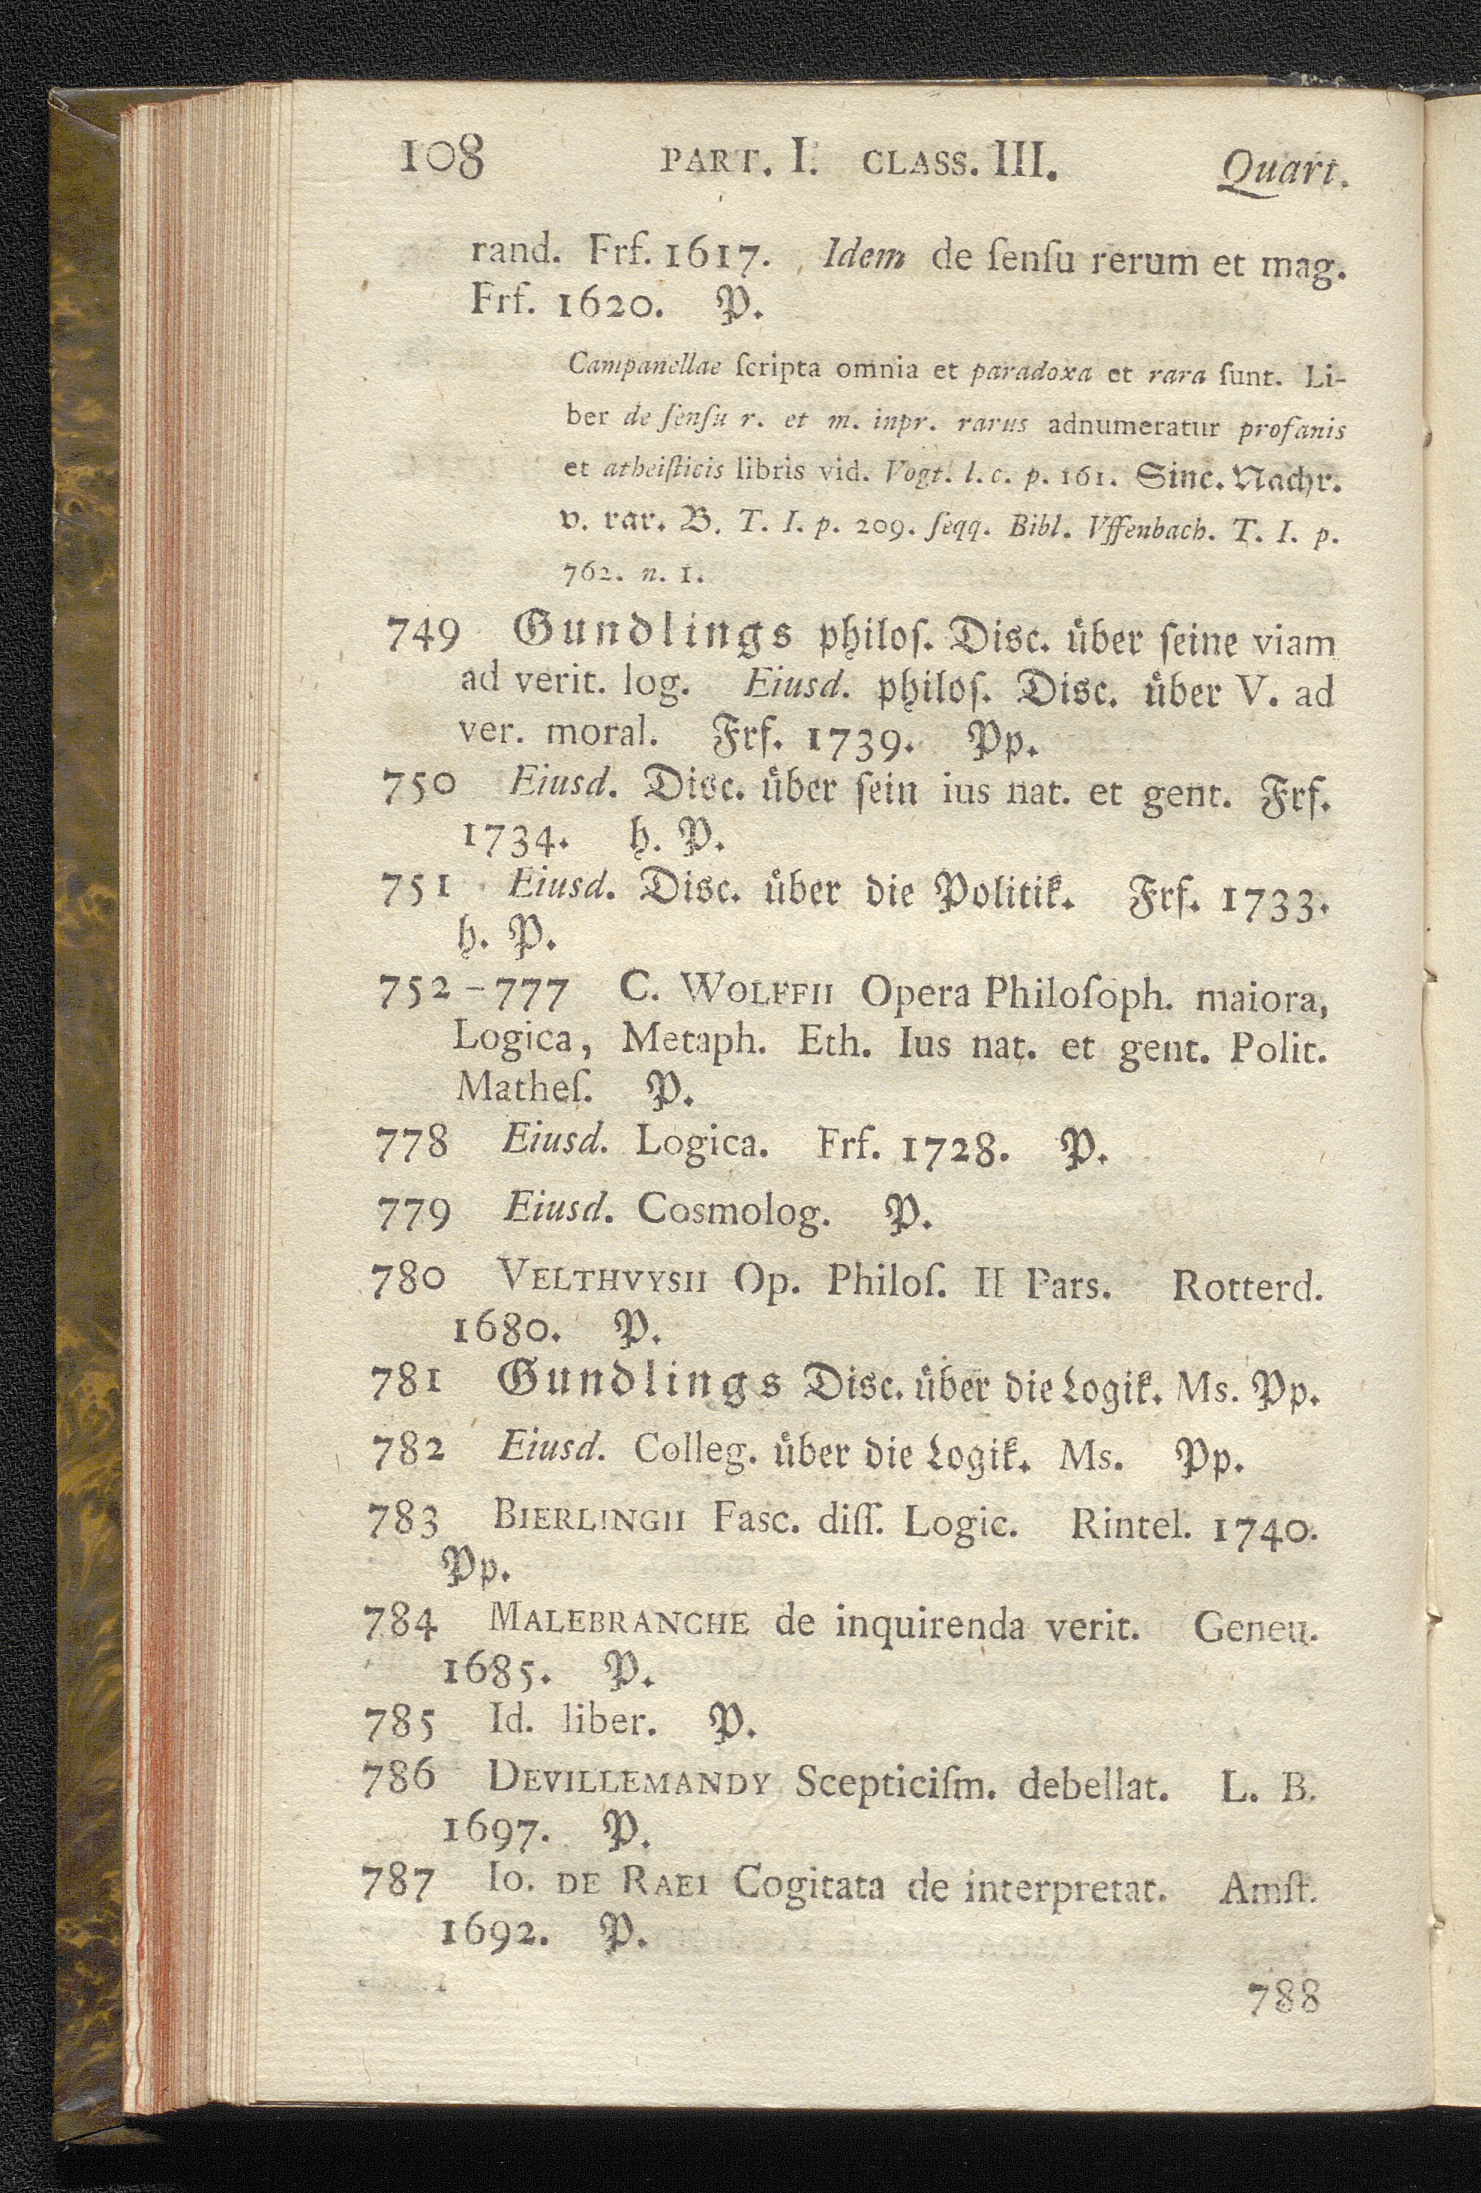 108 PART. I. CLASS. III. Quart.
rand. Frf. 1617. Idem de ſenſu rerum et mag.
Frf. 1620. P.
Campanellae ſcripta omnia et paradoxa et rara ſunt. Li-
ber de ſenſu r. et m. inpr. rarus adnumeratur profanis
et atheiſticis libris vid. Vogt. l. c. p. 161. Sinc. Nachr.
v. rar. B. T. I. p. 209. ſeqq. Bibl. Vffenbach. T. I. p.
762. n. 1.
749 Gundlings philoſ. Disc. über ſeine viam
ad verit. log. Eiusd. philoſ. Disc. über V. ad
ver. moral. Frf. 1739. Pp.
750 Eiusd. Disc. über ſein ius nat. et gent. Frf.
1734. h. P.
751 Eiusd. Disc. über die Politik. Frf. 1733.
h. P.
752-777 C. WOLFFII Opera Philoſoph. maiora,
Logica, Metaph. Eth. Ius nat. et gent. Polit.
Matheſ. P.
778 Eiusd. Logica. Frf. 1728. P.
779 Eiusd. Cosmolog. P.
780 VELTHVYSII Op. Philoſ. II Pars. Rotterd.
1680. P.
781 Gundlings Disc. über die Logik. Ms. Pp.
782 Eiusd. Colleg. über die Logik. Ms. Pp.
783 BIERLINGII Fasc. diſſ. Logic. Rintel. 1740.
Pp.
784 MALEBRANCHE de inquirenda verit. Geneu.
1685. P.
785 Id. liber. P.
786 DEVILLEMANDY Scepticiſm. debellat. L. B.
1697. P.
787 Io. DE RAEI Cogitata de interpretat. Amſt.
1692. P.
788